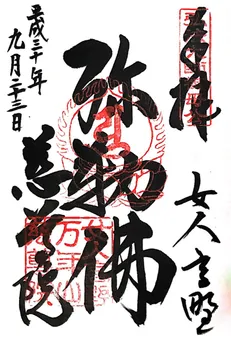 奉拝
女人高野
弥勒佛
慈尊院
平成三十年
九月二十三日